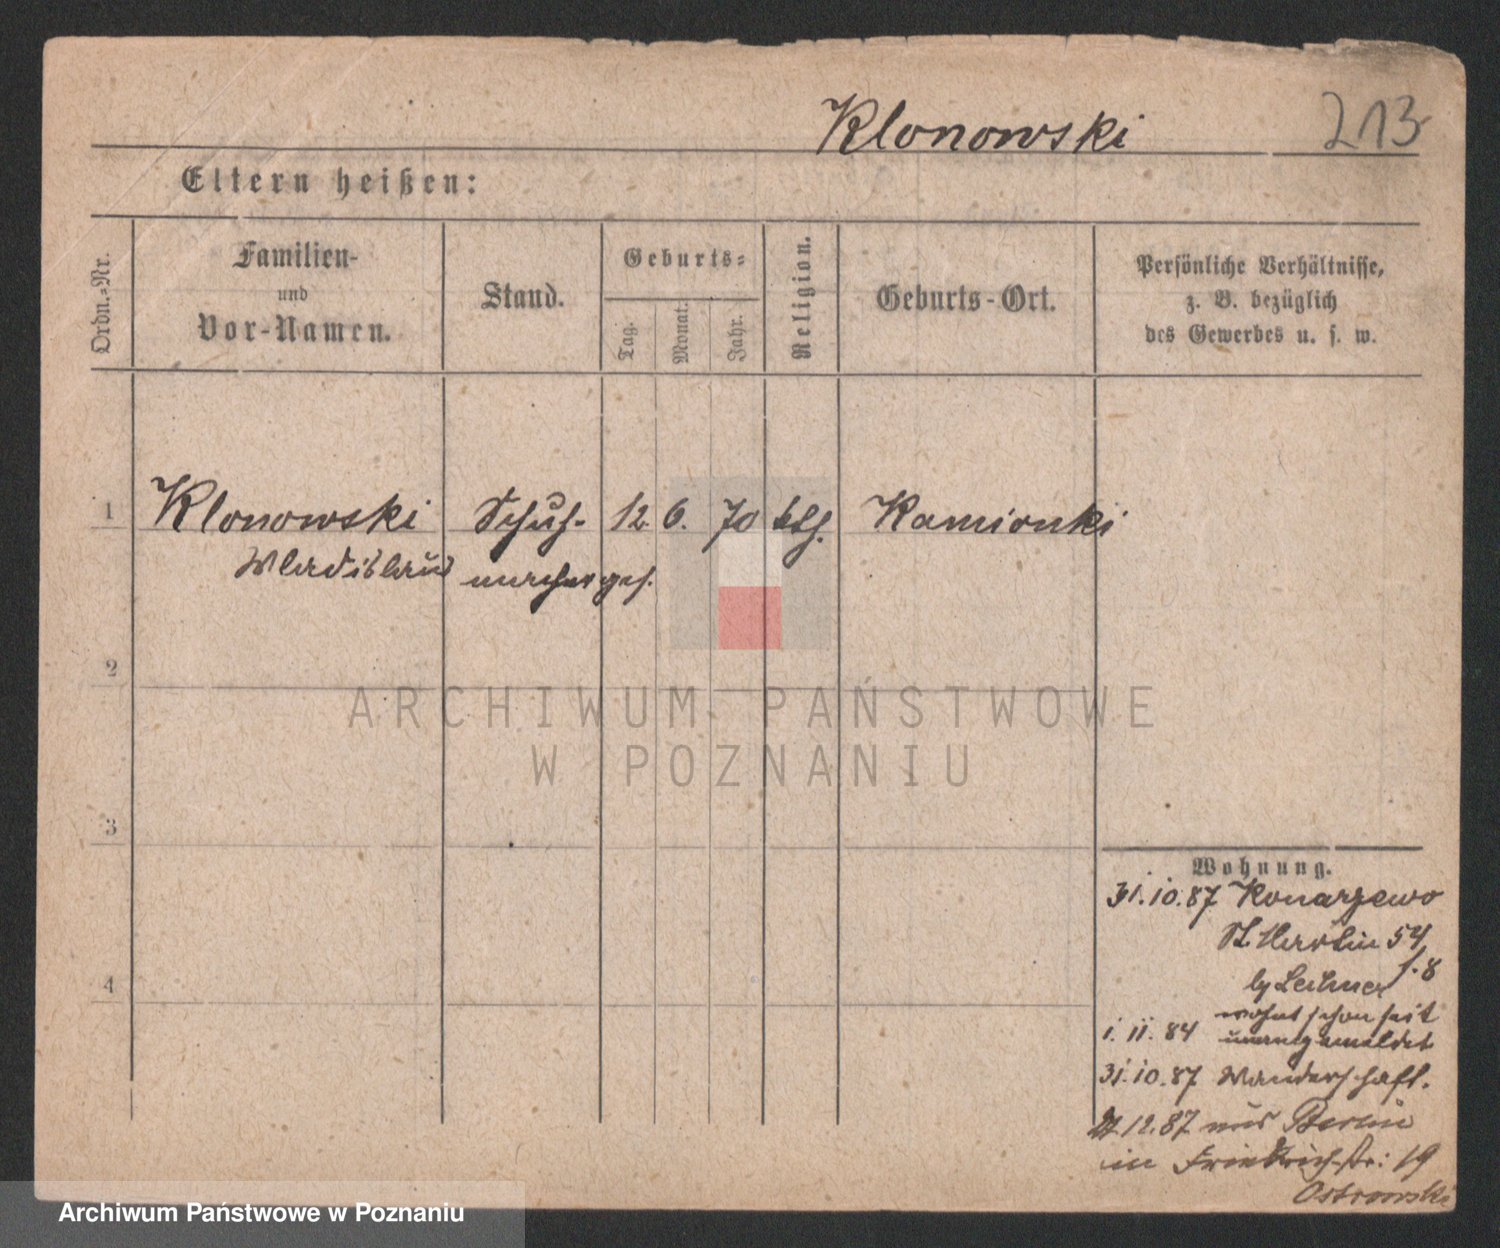 Klonowski 213
Eltern heißen:
Ordn.-Nr.
Familien-
und
Vor-Namen.
Stand.
Geburts-
Tag.
Monat.
Jahr.
Religion.
Geburts-Ort.
Persönliche Verhältnisse,
z. B. bezüglich
des Gewerbes u. s. w.
1 Klonowski Schuh- 12. 6. 70 kth. Kamionki
Wladislaus macherges.
2
3
4
Wohnung.
31.10.87 Konarzewo
St. Martin 54
b/ Lechner
wohnt schon seit
1. 11. 84 unangemeldet
31.10.87 Wanderschaft.
12.87 aus Berlin
in Friedrich-str: 19
Ostrowski
ARCHIWUM PAŃSTWOWE
W POZNANIU
Archiwum Państwowe w Poznaniu